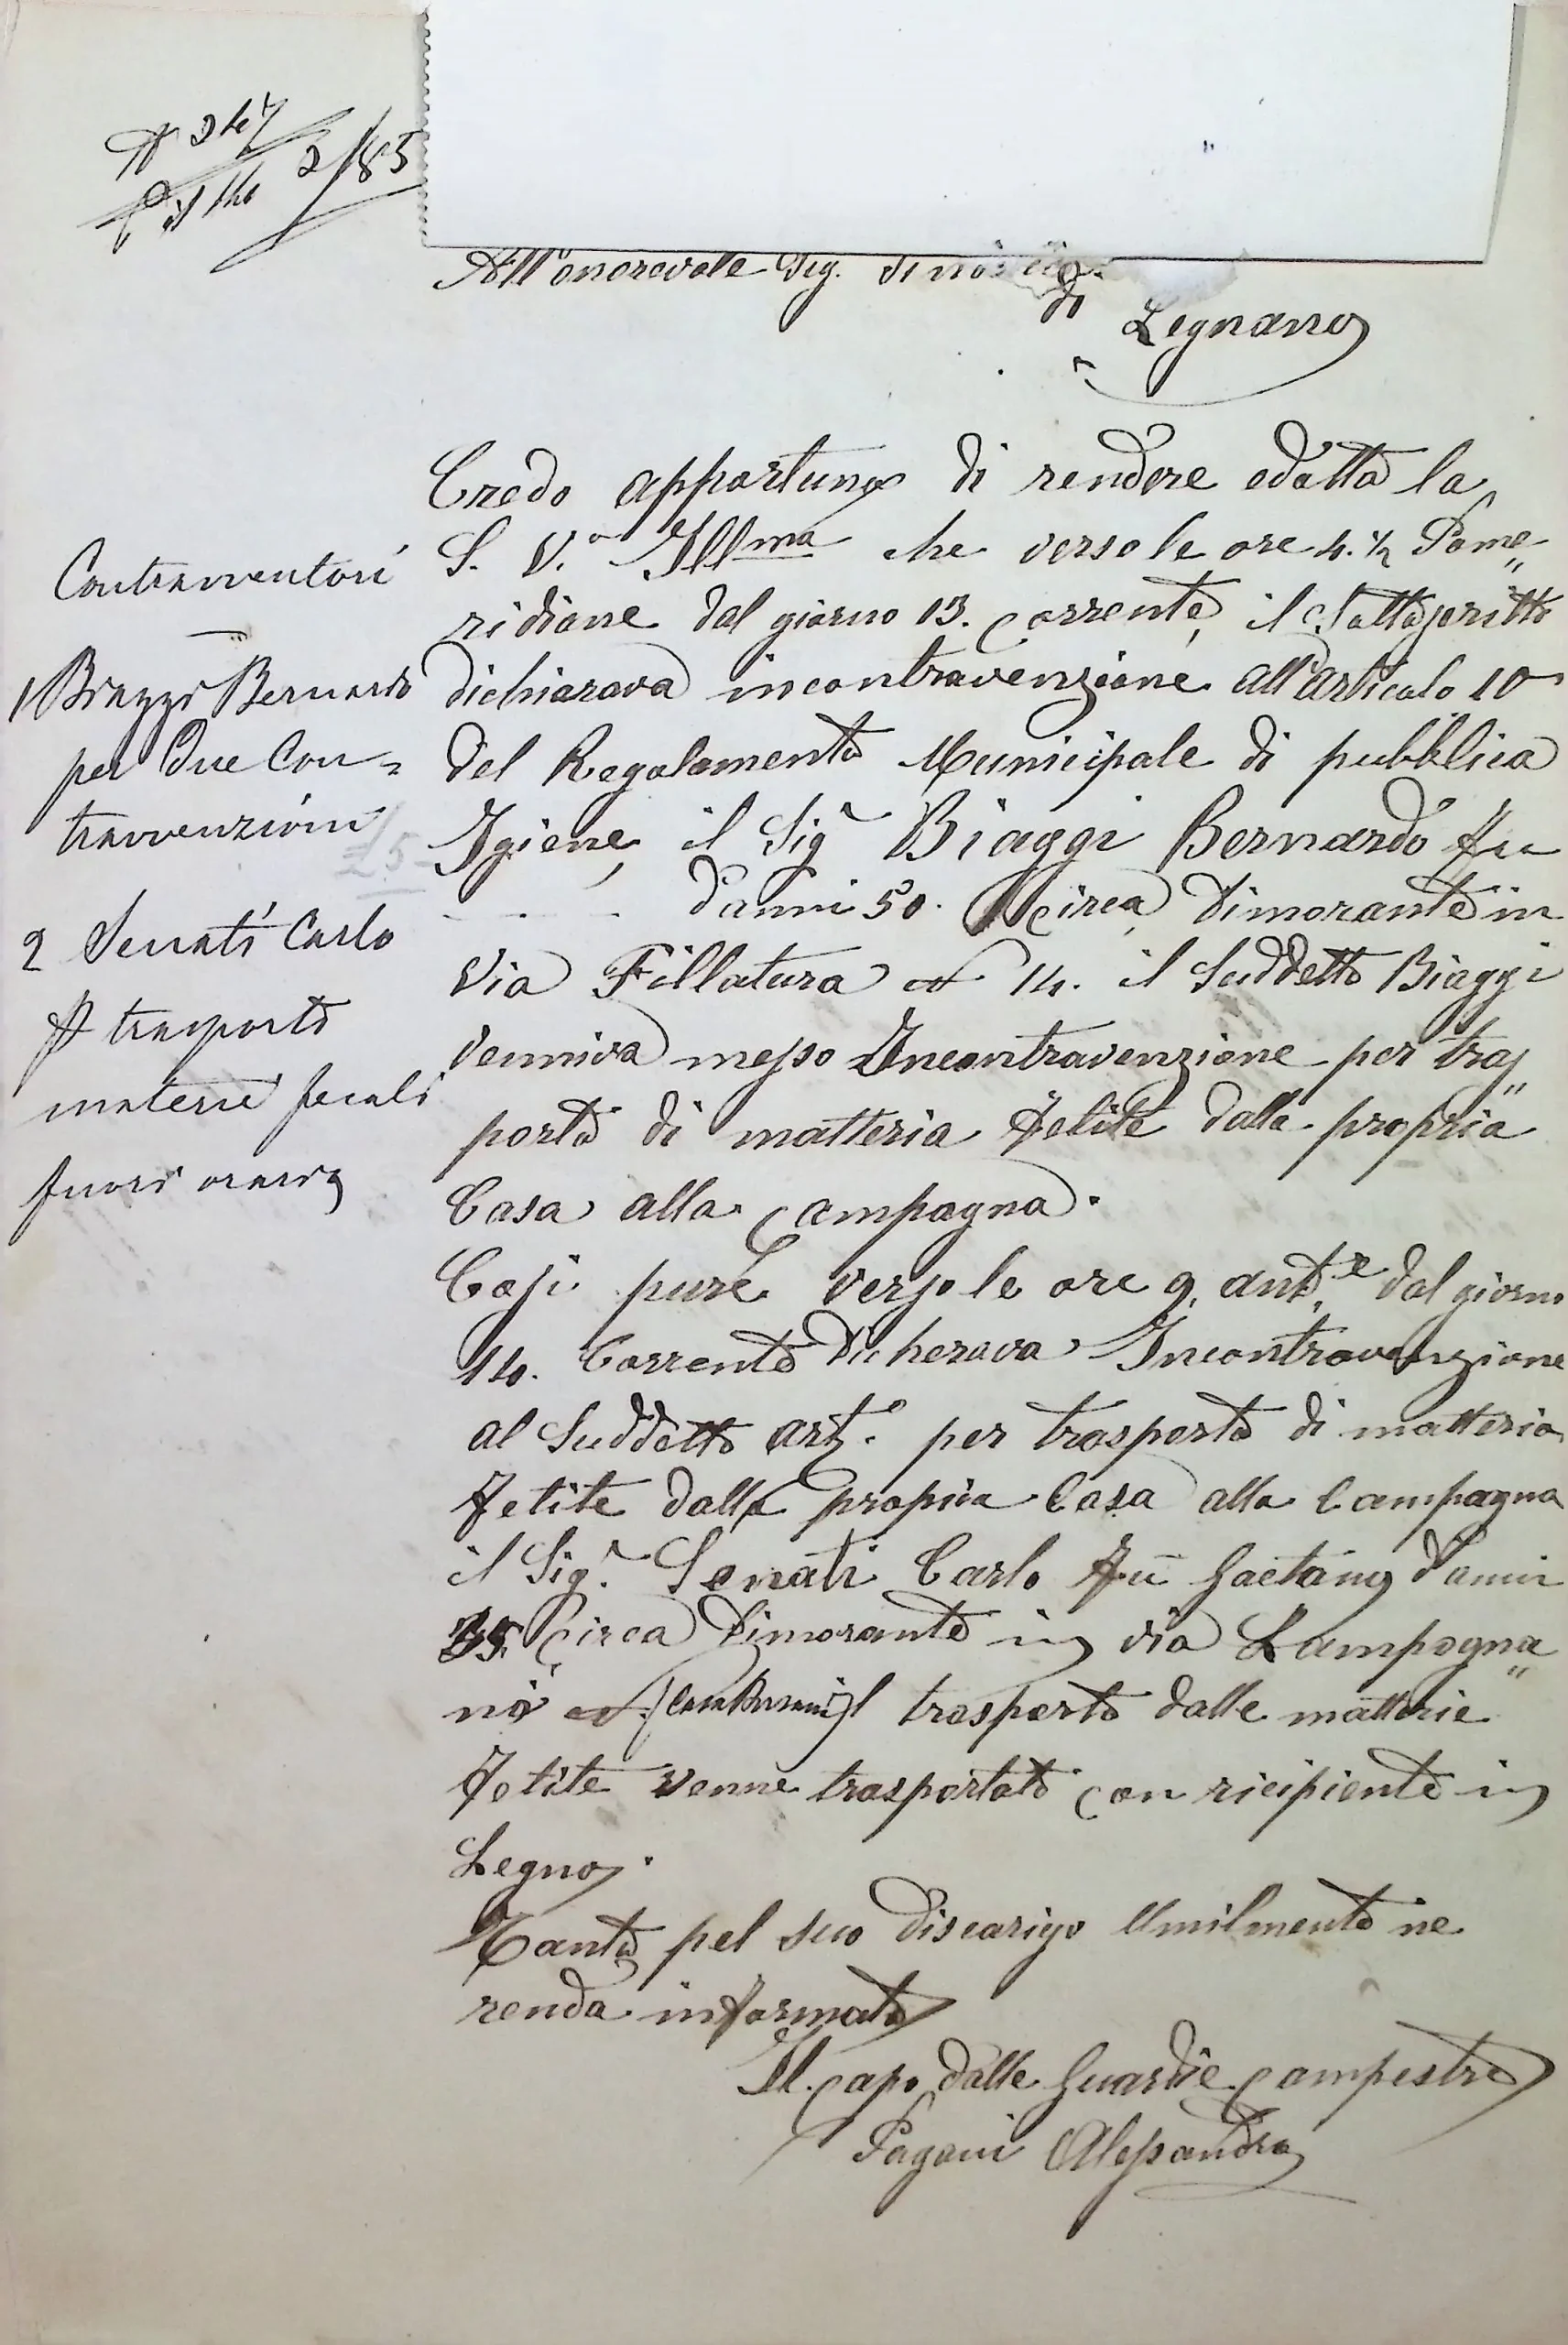 N 247
2/85
All'onorevole Sig. Sindaco
di
Legnano
Credo apportuno di rendere edotta la
S. V.a Ill.ma che verso le ore 4. ½ Pome
ridiane dal giorno 13. corrente, il Sottoscritto
dichiarava incontravenzione all'articolo 10
del Regolamento Municipale di pubblica
Igiene, il Sig.r Biaggi Bernardo fu
d'anni 50. circa, dimorante in
Via Fillatura N 14. il Suddetto Biaggi
venniva messo Incontravenzione per tras
porto di matteria fetite dalla propria
Casa alla campagna.
Cosi pure verso le ore 9. ant.e dal giorno
14. Corrente dicherava Incontravenzione
al Suddetto art.o per trasporto di matteria
fetite dalla propria Casa alla Campagna
il Sig.r Senati Carlo fu Gaetano d'anni
35. Circa dimorante in via Lampogna
ni N. il trasporto dalle matterie
fetite venne trasportato con ricipiente in
Legno.
Tanto pel suo discarigo Umilmente ne
renda informato
Il capo dalle Guardie campestre
Pagani Alessandro
Contravventori
1 Biaggi Bernardo
per due Con=
travvenzioni
£5
2 Senati Carlo
trasporto
materie fecali
fuori orario